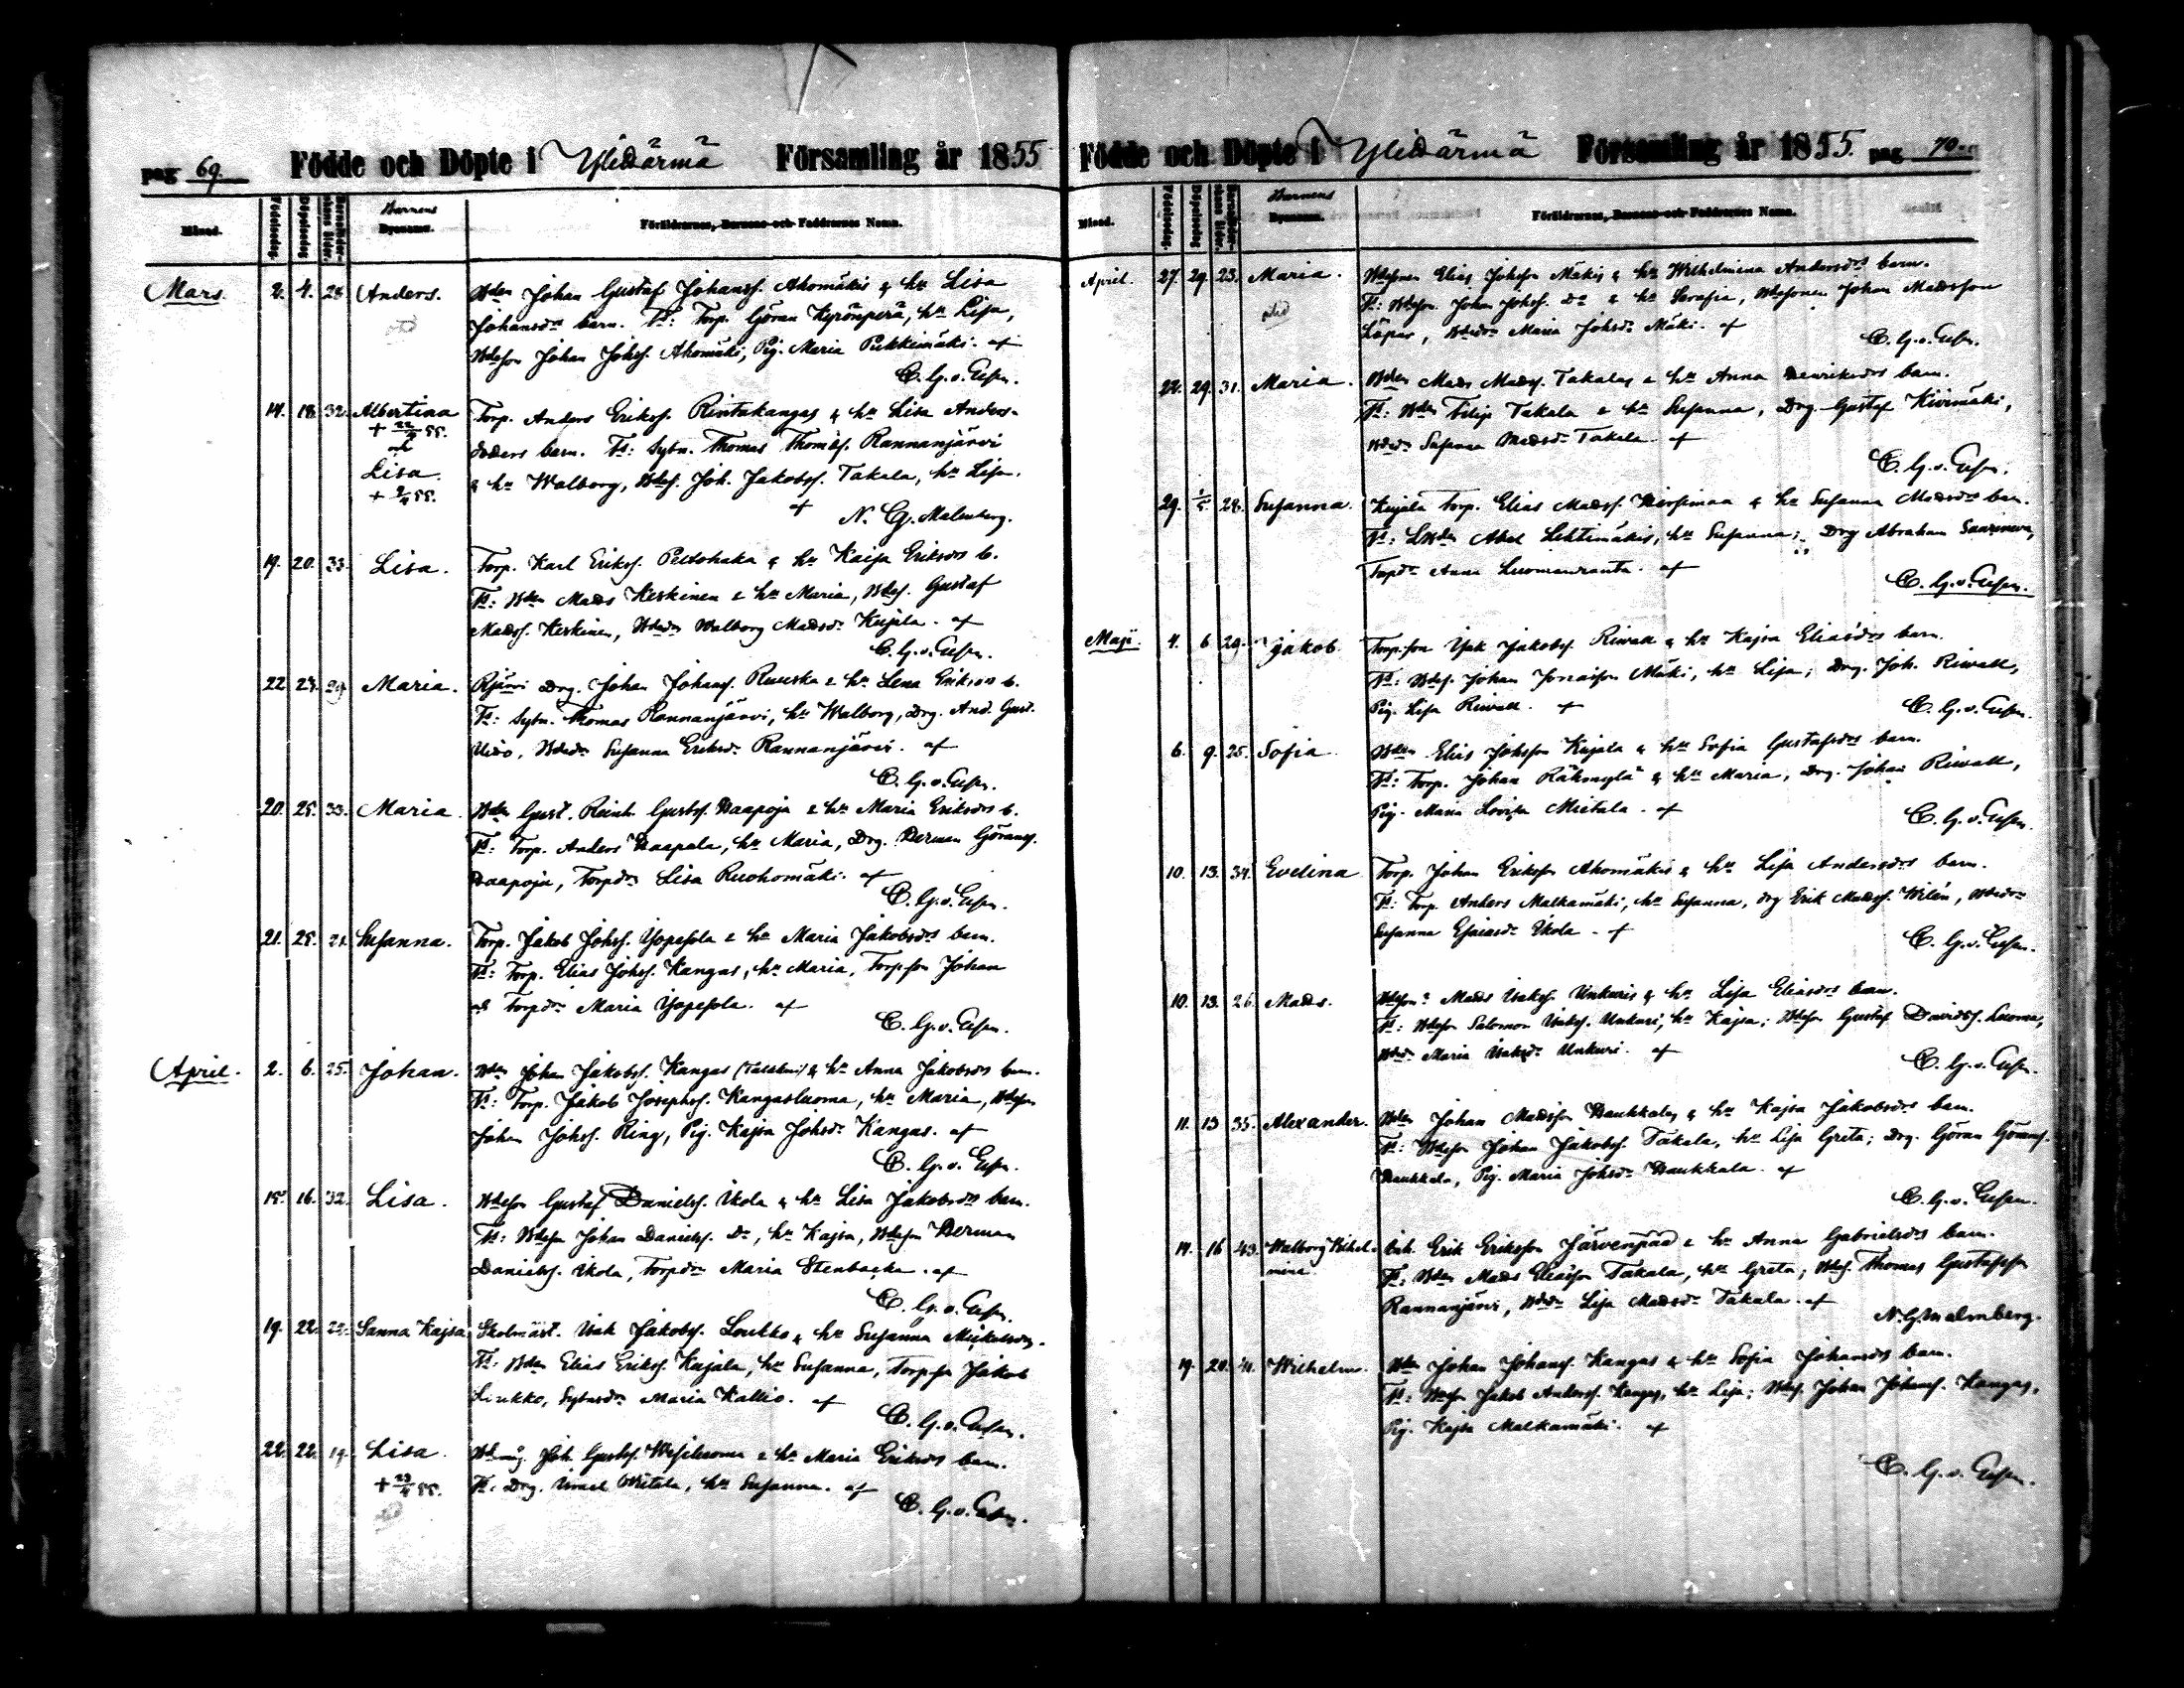 pag 69. Födde och Döpte i Ylihärmä Församling år 1855
Månad. Födelsedag. Döpelsedag Barnaföderskans ålder. Barnens Bynamn. Föräldrarnes, Barnens och Faddrarnes Namn.
Mars. 2. 4. 28 Anders. Bden Johan Gustaf Johanss. Ahomäkis & hu Lisa
Johansdrs barn. Ts: Torp. Göran Kyrönperä, hu Lisa,
Bdeson Johan Johss. Ahomäki, Pig. Maria Pukkimäki. af
C. G. v. Essen.
14. 18. 32. Albertina Torp. Anders Erikss. Rintakangas & hu Lisa Anders-
+ 22/3 55.
och dotters barn. Ts: Sytn. Thomas Thomass. Rannanjärvi
Lisa. & hu Walborg, Bdes. Joh. Jakobss. Takala, hu Lisa.
+ 2/4 55. af N. G. Malmberg.
19. 20. 33. Lisa. Torp. Karl Erikss. Peldohaka & hu Kaisa Eriksdrs b.
Ts: Bden Mads Keskinen & hu Maria, Bdes. Gustaf
Madss. Keskinen, Bdedr Walborg Madsdr Kujala. af
C. G. v. Essen.
22 23. 29 Maria. Rjärvi Drg. Johan Johanss. Ruuska & hu Lena Eriksdrs b.
Ts: Sytn. Thomas Rannanjärvi, hu Walborg, Drg. And. Gust.
Bdedr Susanna Eriksdr Rannanjärvi. af
C. G. v. Essen.
20. 25. 33. Maria. Bden Gust. Reinh. Gustss. Haapoja & hu Maria Eriksdrs b.
Ts: Torp. Anders Haapala, hu Maria, Drg. Herman Göranss.
Haapoja, Torpdr Lisa Ruohomäki. af
C. G. v. Essen.
21. 25. 21. Susanna. Torp. Jakob Johss. Yopesola & hu Maria Jakobsdrs barn.
Ts: Torp. Elias Johss. Kangas, hu Maria, Torpson Johan
och Torpdr Maria Yopesola. af
C. G. v. Essen.
April. 2. 6. 25. Johan. Bden Johan Jakobss. Kangas & hu Anna Jakobsdrs barn.
Ts: Torp. Jakob Josephss. Kangasluoma, hu Maria, Bdeson
Johan Johss. Ring, Pig. Kajsa Johsdr Kangas. af
C. G. v. Essen.
15. 16. 32. Lisa. Bdeson Gustaf Danielss. Ikola & hu Lisa Jakobsdrs barn.
Ts: Bdeson Johan Danielss. Do, hu Kajsa, Bdeson Herman
Danielss. Ikola, Torpdr Maria Stenbacka. af
C. G. v. Essen.
19. 22. Sanna Kajsa Skolmäst. Isak Jakobss. Loukko & hu Susanna Mickelsdrs.
Ts: Bden Elias Erikss. Kujala, hu Susanna, Torpson Jakob
Loukko, Sytnsdr Maria Kallio. af
C. G. v. Essen.
22. 22. 19. Lisa. Bdmåg Joh. Gustss. Wesiluoma & hu Maria Eriksdrs barn.
+ 23/4 55. Ts: Drg. Israel hu Susanna. af
C. G. v. Essen.
Födde och Döpte i Ylihärmä Församling år 1855. pag 70.
Månad. Födelsedag. Döpelsedag Barnaföderskans ålder. Barnens Bynamn. Föräldrarnes, Barnens och Faddrarnes Namn.
April. 27. 29. 23. Maria. Bdesonen Elias Johsson Mäkis & hu Wilhelmina Andersdrs barn.
Ts: Bdeson Johan Johss. Do & hu Serafia, Bdesonen Johan Madsson
Löpar, Bdedr Maria Johsdr Mäki. af
C. G. v. Essen.
22. 29. 31. Maria. Bden Mads Madss. Takalas & hu Anna Henriksdrs barn.
Ts: Bden Filip Takala & hu Susanna, Drg. Gustaf Kivimäki,
Bdedr Susanna Madsdr Takala. af
C. G. v. Essen.
29. 1/5 28. Susanna. Kujala Torp. Elias Madss. Hirsimaa & hu Susanna Madsdrs barn.
Ts: Abel Lehtimäkis, hu Susanna; Drg Abraham Saarimaa,
Torpdr Anna Luomanranta. af
C. G. v. Essen.
Maji. 4. 6 29. Jakob. Torpson Isak Jakobss. Riwall & hu Kajsa Eliasdrs barn.
Ts: Bdes. Johan Jonasson Mäki, hu Lisa; Drg. Joh. Riwall,
Pig. Lisa Riwall. af
C. G. v. Essen.
6. 9. 25. Sofia. Bden Elias Johsson Kujala & hu Sofia Gustafsdrs barn.
Ts: Torp. Johan & hu Maria, Drg. Johan Riwall,
Pig. Maria Lovisa Mietala. af
C. G. v. Essen.
10. 13. 34. Evelina Torp. Johan Eriksson Ahomäkis & hu Lisa Andersdrs barn.
Ts: Torp. Anders Malkamäki, hu Susanna, drg Erik Madss. Wilén, Bdedr
Susanna Esaiasdr Ikola. af
C. G. v. Essen.
10. 13. 26. Mads. Bdeson Mads Isakss. Unkuris & hu Lisa Eliasdrs barn.
Ts: Bdeson Salomon Isakss. Unkuri, hu Kajsa; Bdeson Gustaf Davidss. Luoma,
Bdedr Maria Isaksdr Unkuri. af
C. G. v. Essen.
11. 13 35. Alexander. Bden Johan Madsson Haukkalas & hu Kajsa Jakobsdrs barn.
Ts: Bdeson Johan Jakobss. Takala, hu Lisa Greta; Drg. Göran Göranss.
Haukkala, Pig. Maria Johsdr Haukkala. af
C. G. v. Essen.
14. 16 43. Walborg Wilhel- Inh. Erik Eriksson Järvenpää & hu Anna Gabrielsdrs barn.
mina. Ts: Bden Mads Eliasson Takala, hu Greta; Bdes. Thomas Gustafsson
Rannanjärvi, Bdedr Lisa Madsdr Takala. af
N. G. Malmberg.
19. 20. 41. Wilhelm. Bden Johan Johanss. Kangas & hu Sofia Johansdrs barn.
Ts: Bdeson Jakob Anderss. Kangas, hu Lisa; Bdes. Johan Johanss. Kangas,
Pig. Kajsa Malkamäki. af
C. G. v. Essen.